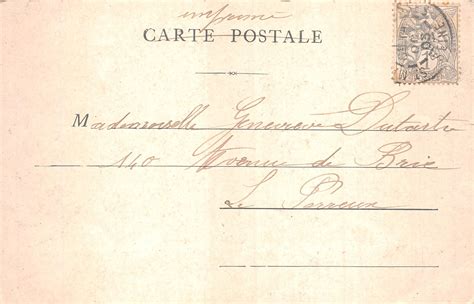 imprimé
CARTE POSTALE
Mademoiselle Geneviève Dutartre
140 Avenue de Brie
Le Perreux